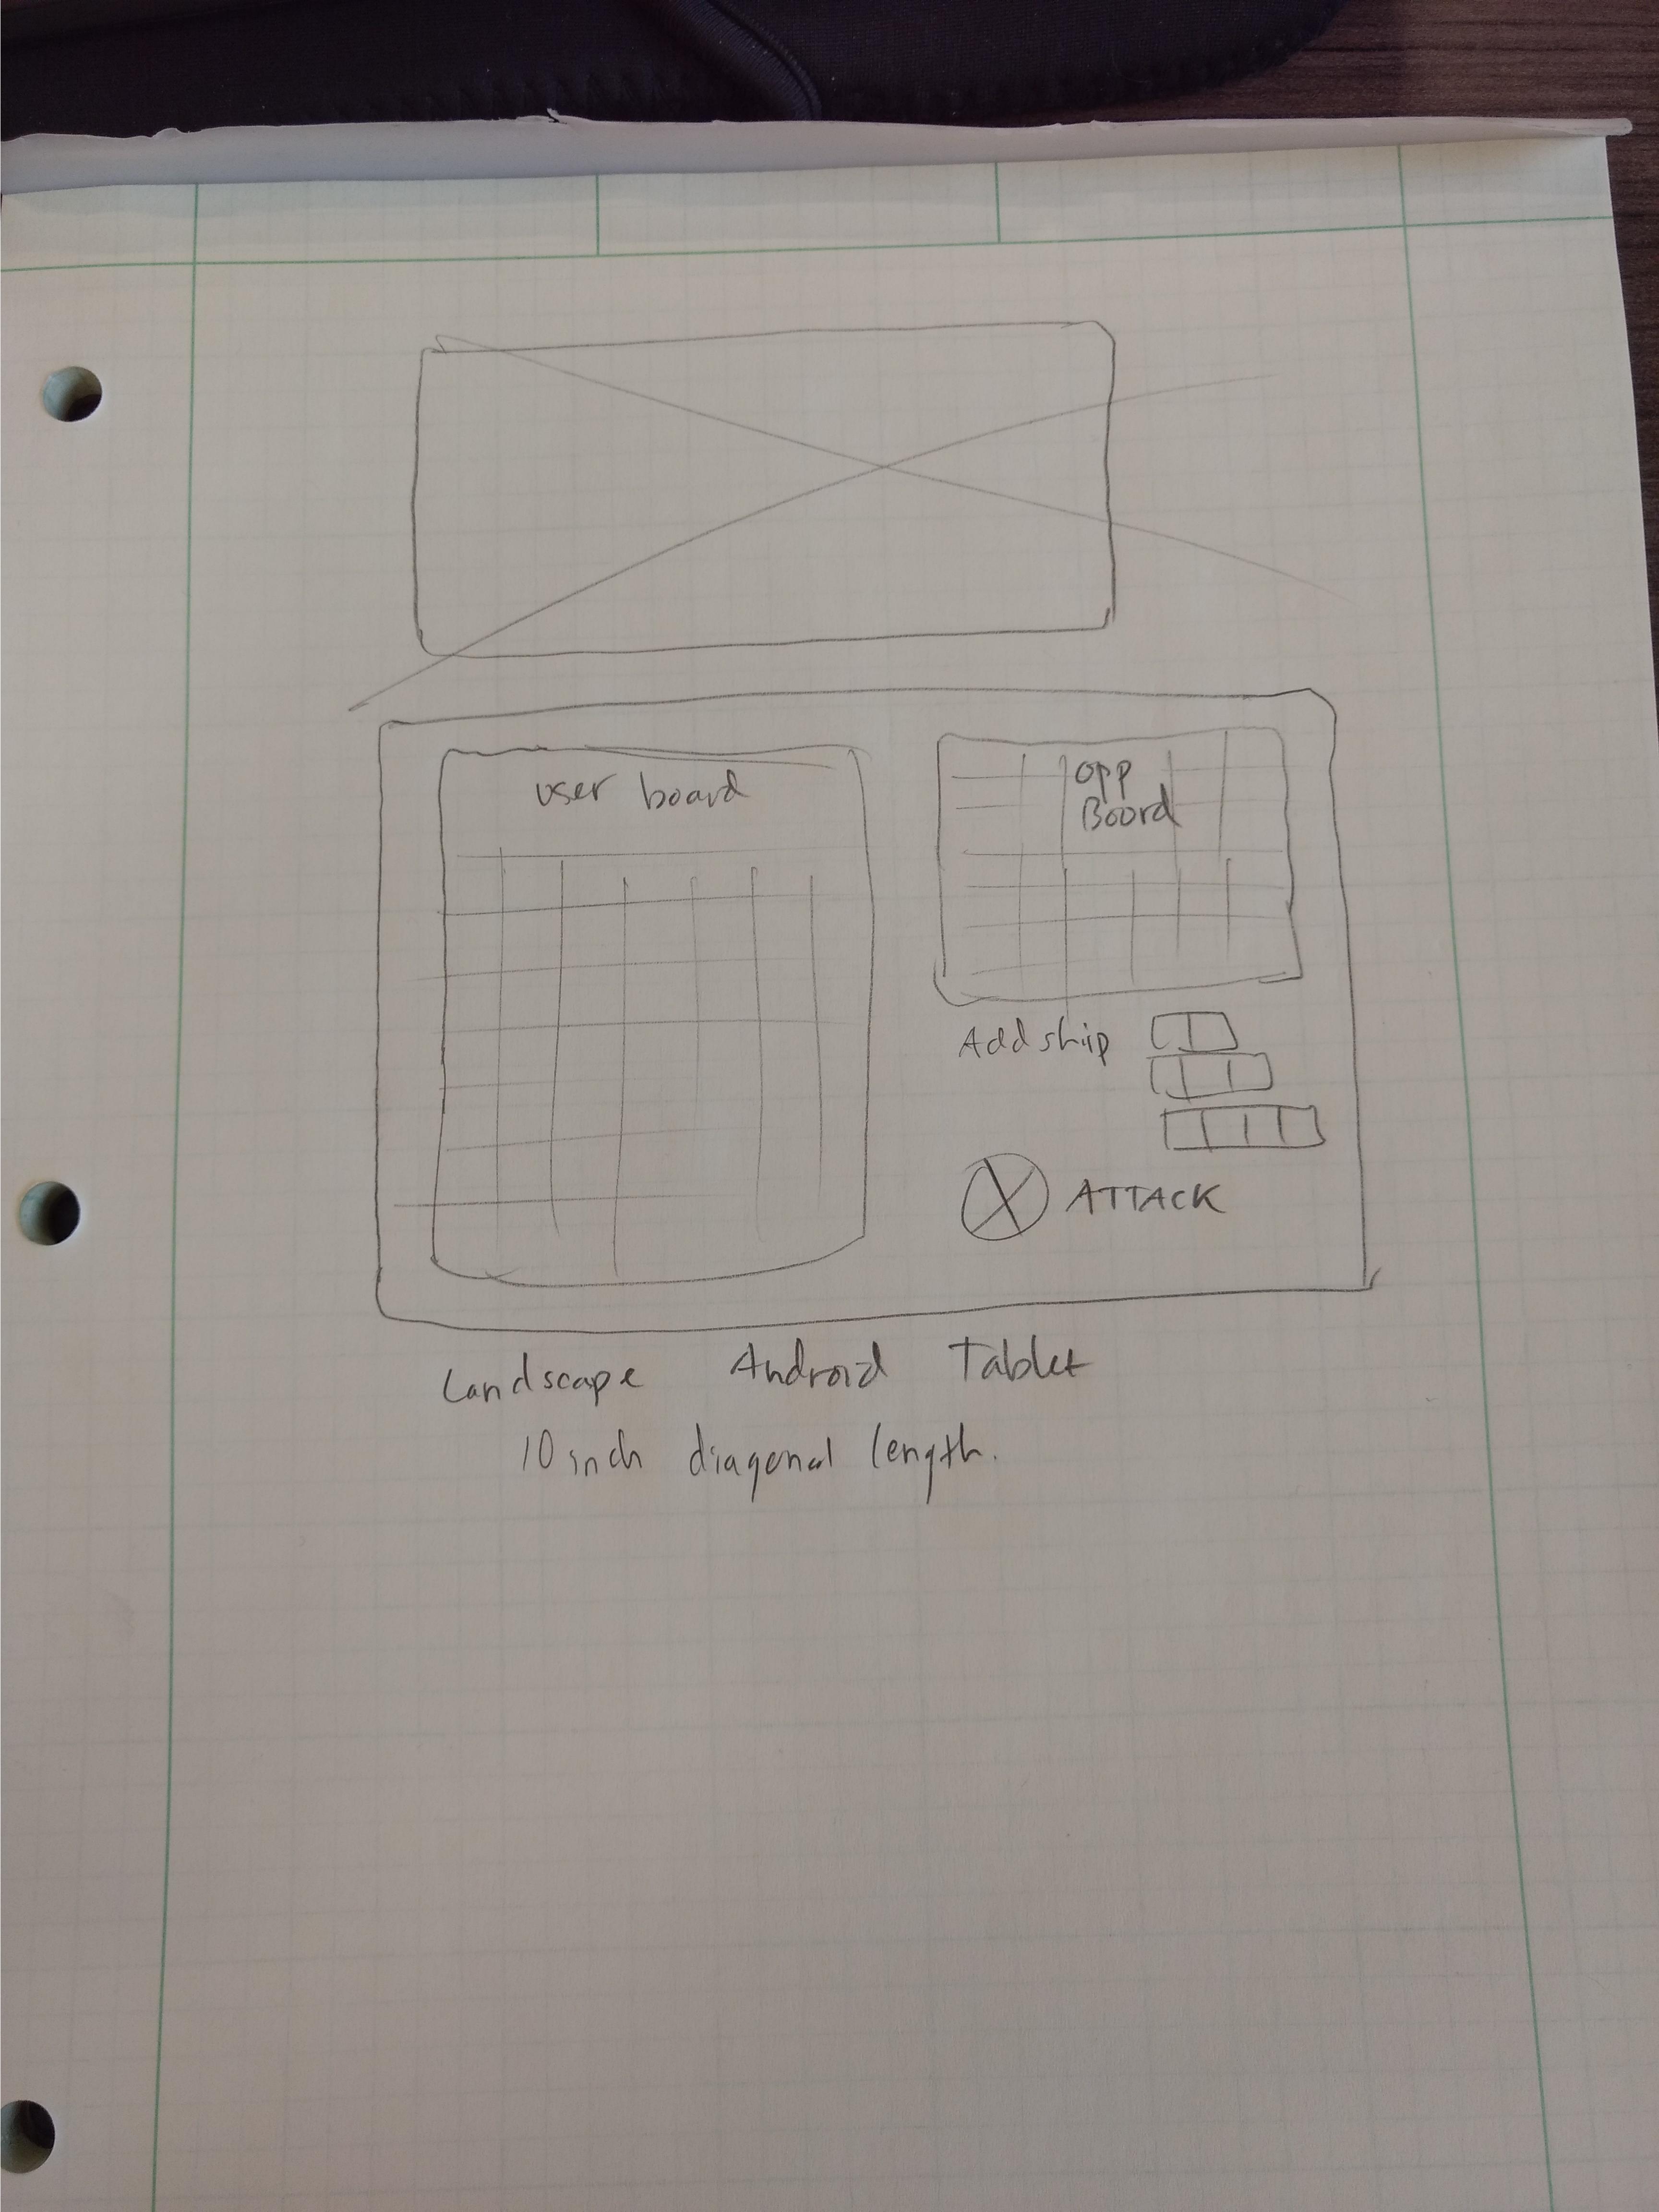 user board
opp
Board
Add ship
ATTACK
Landscape Android Tablet
10 inch diagonal length.